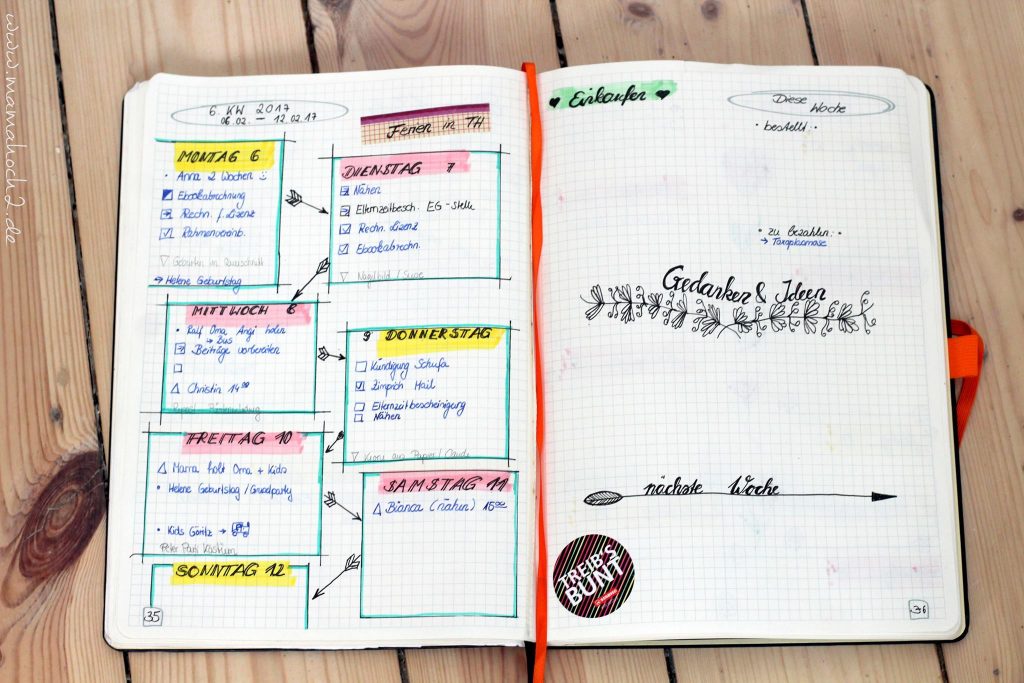 www.mamahoch2.de
6. KW 2017
06.02. – 12.02.17
Ferien in TH
MONTAG 6
• Anna 2 Wochen
Ebookabrechnung
Rechn. f. Lizenz
Rahmenvereinb.
▽ Geburten im
→ Helene Geburtstag
DIENSTAG 7
Nähen
Elternzeitbesch. EG-Stelle
Rechn. Lizenz
Ebookabrechn.
▽ Nagelbild /
MITTWOCH 8
• Ralf Oma Angi holen
→ Bus
Beiträge vorbereiten
△ Christin 14⁰⁰
9 DONNERSTAG
Kündigung Schufa
Zimprich Mail
Elternzeitbescheinigung
Nähen
▽ aus Papier /
FREITAG 10
△ Mama holt Oma + Kids
• Helene Geburtstag /
• Kids Göritz →
Peter Pan Kostüm
SAMSTAG 11
△ Bianca (nähen) 15⁰⁰
SONNTAG 12
35
♥ Einkaufen ♥
Diese
Woche
• bestellt:
• zu bezahlen:
→
Gedanken & Ideen
nächste Woche
TREIB'S
BUNT
36